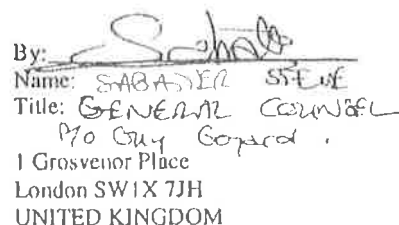 By:
Name: SABATIER STEVE
Title: GENERAL COUNSEL
P/O Guy
1 Grosvenor Place
London SW1X 7JH
UNITED KINGDOM